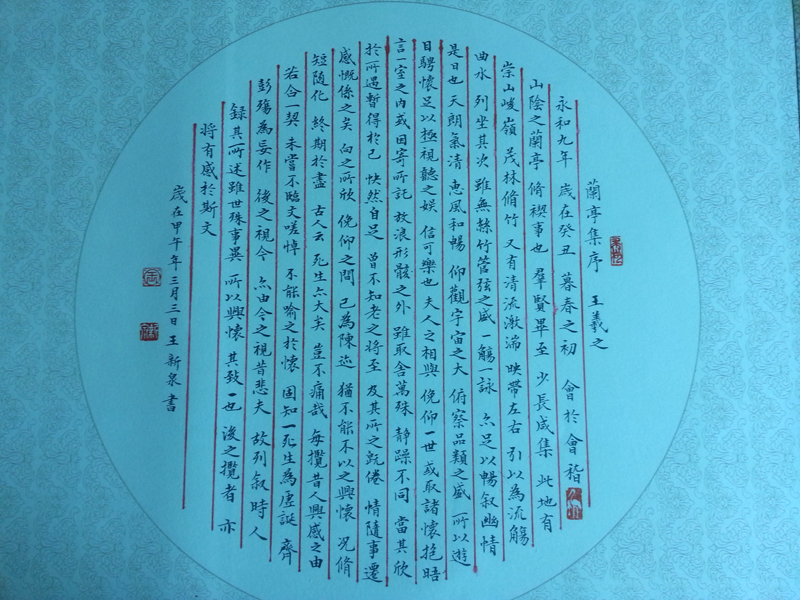 蘭亭集序 王羲之
永和九年 歲在癸丑 暮春之初 會於會稽
山陰之蘭亭 脩禊事也 羣賢畢至 少長咸集 此地有
崇山峻嶺 茂林脩竹 又有清流激湍 映帶左右 引以為流觴
曲水 列坐其次 雖無絲竹管弦之盛 一觴一詠 亦足以暢叙幽情
是日也 天朗氣清 惠風和暢 仰觀宇宙之大 俯察品類之盛 所以遊
目騁懷 足以極視聽之娛 信可樂也 夫人之相與 俛仰一世 或取諸懷抱 晤
言一室之內 或因寄所託 放浪形骸之外 雖取舍萬殊 靜躁不同 當其欣
於所遇 暫得於己 怏然自足 曾不知老之将至 及其所之既倦 情隨事遷
感慨係之矣 向之所欣 俛仰之間 已為陳迹 猶不能不以之興懷 况脩
短随化 終期於盡 古人云 死生亦大矣 豈不痛哉 每攬昔人興感之由
若合一契 未嘗不臨文嗟悼 不能喻之於懷 固知一死生為虛誕 齊
彭殤為妄作 後之視今 亦由今之視昔 悲夫 故列叙時人
録其所述 雖世殊事異 所以興懷 其致一也 後之攬者 亦
将有感於斯文
歲在甲午年三月三日 王新泉書